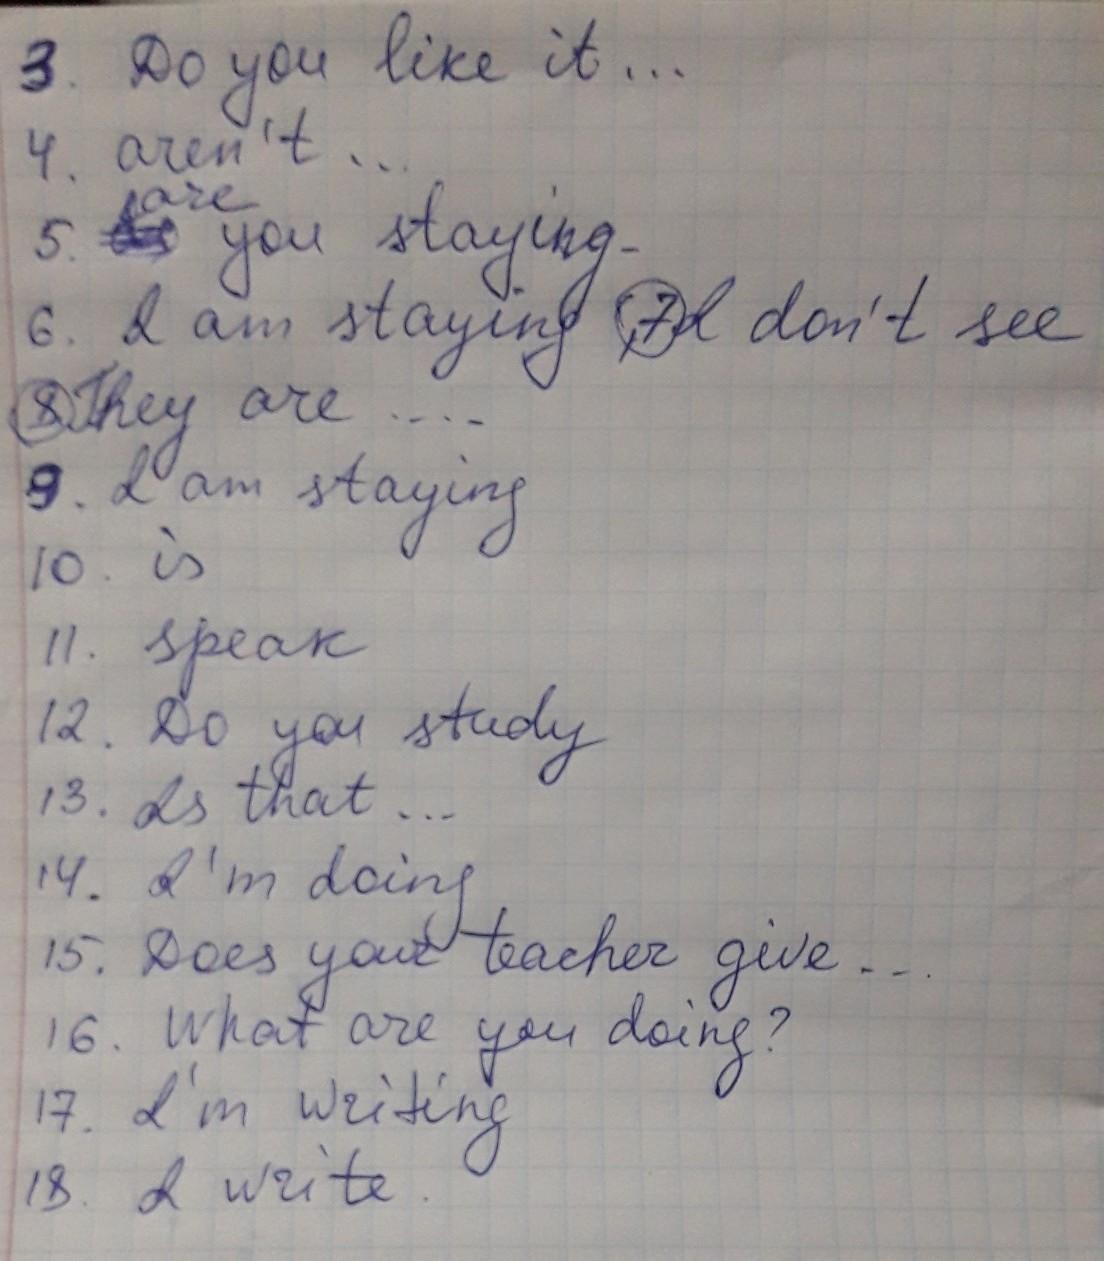 3. Do you like it ...
4. aren't ...
are
5. you staying -
6. I am staying 7 I don't see
8 They are ....
9. I am staying
10. is
11. speak
12. Do you study
13. Is that ...
14. I'm doing
15. Does your teacher give ...
16. What are you doing?
17. I'm writing
18. I write.